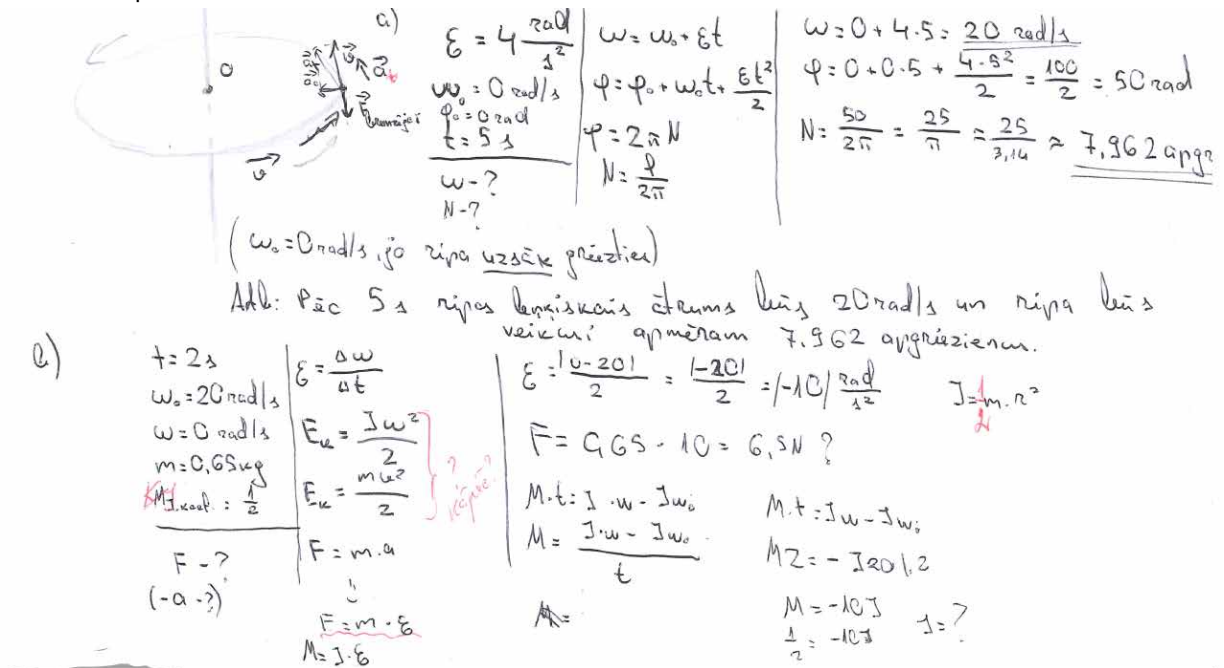 a)
O
ε = 4 rad/s²
ω₀ = 0 rad/s
φ₀ = 0 rad
t = 5 s
ω - ?
N - ?
ω = ω₀ + εt
φ = φ₀ + ω₀t + εt²/2
φ = 2πN
N = φ/2π
ω = 0 + 4·5 = 20 rad/s
φ = 0 + 0·5 + 4·5²/2 = 100/2 = 50 rad
N = 50/2π = 25/π = 25/3,14 ≈ 7,962 apgr
(ω₀ = 0 rad/s, jo ripa uzsāk griezties)
Atb: Pēc 5 s ripas leņķiskais ātrums būs 20 rad/s un ripa būs
veikusi apmēram 7.962 apgriezienus.
t = 2s
ω₀ = 20 rad/s
ω = 0 rad/s
m = 0,65 kg
koef. = 1/2
F - ?
(-a - ?)
ε = Δω/Δt
Eₖ = Jω²/2
Eₖ = mv²/2
? Kāpēc?
F = m·a
F = m·ε
M = J·ε
ε = |0-20|/2 = |-20|/2 = |-10| rad/s²
F = 0,65 · 10 = 6,5N ?
M·t = J·ω - Jω₀
M = J·ω - Jω₀/t
M =
J = 1/2 m·r²
M·t = Jω - Jω₀
M2 = - J20 |:2
M = -10J
1/2 = -10J J = ?